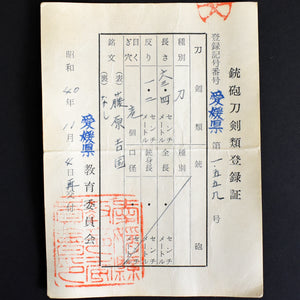 銃砲刀剣類登録証
登録記号番号 愛媛県 第一五五九号
刀剣類
銃砲
種別 刀
種別
長さ センチメートル
全長 センチメートル
反り 一・二 センチメートル
銃身長 センチメートル
目くぎ穴 壱個
口径 センチメートル
銘文 (表) 藤原吉国
(裏) なし
昭和40年11月4日再交付
愛媛県教育委員会